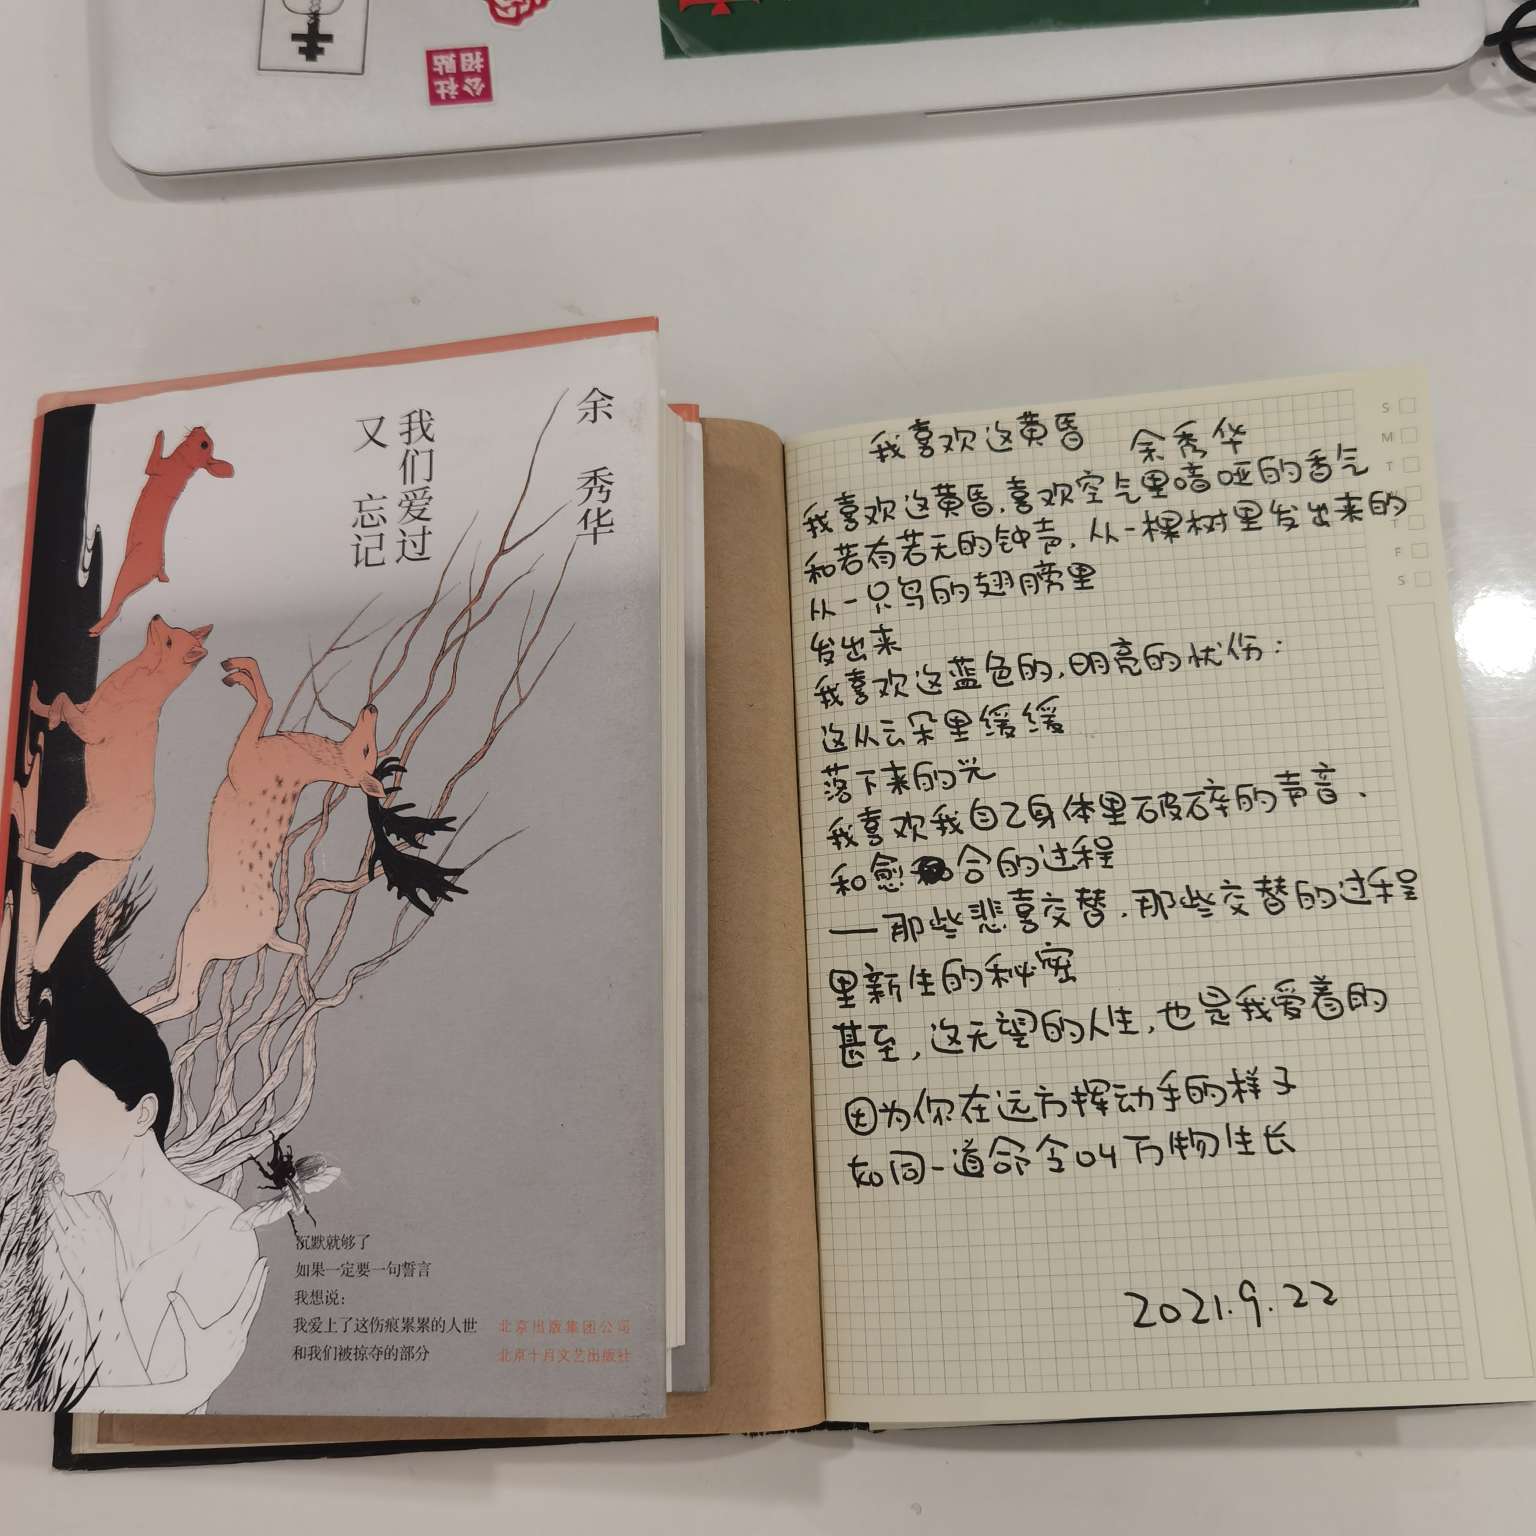 公社
招贴
余秀华
我们爱过
又忘记
沉默就够了
如果一定要一句誓言
我想说：
我爱上了这伤痕累累的人世
和我们被掠夺的部分
北京出版集团公司
北京十月文艺出版社
我喜欢这黄昏 余秀华
我喜欢这黄昏,喜欢空气里喑哑的香气
和若有若无的钟声,从一棵树里发出来的
从一只鸟的翅膀里
发出来
我喜欢这蓝色的,明亮的忧伤:
这从云朵里缓缓
落下来的光
我喜欢我自己身体里破碎的声音,
和愈合的过程
—那些悲喜交替,那些交替的过程
里新生的秘密
甚至,这无望的人生,也是我爱着的
因为你在远方挥动手的样子
如同一道命令叫万物生长
2021.9.22
S
M
T
T
F
S